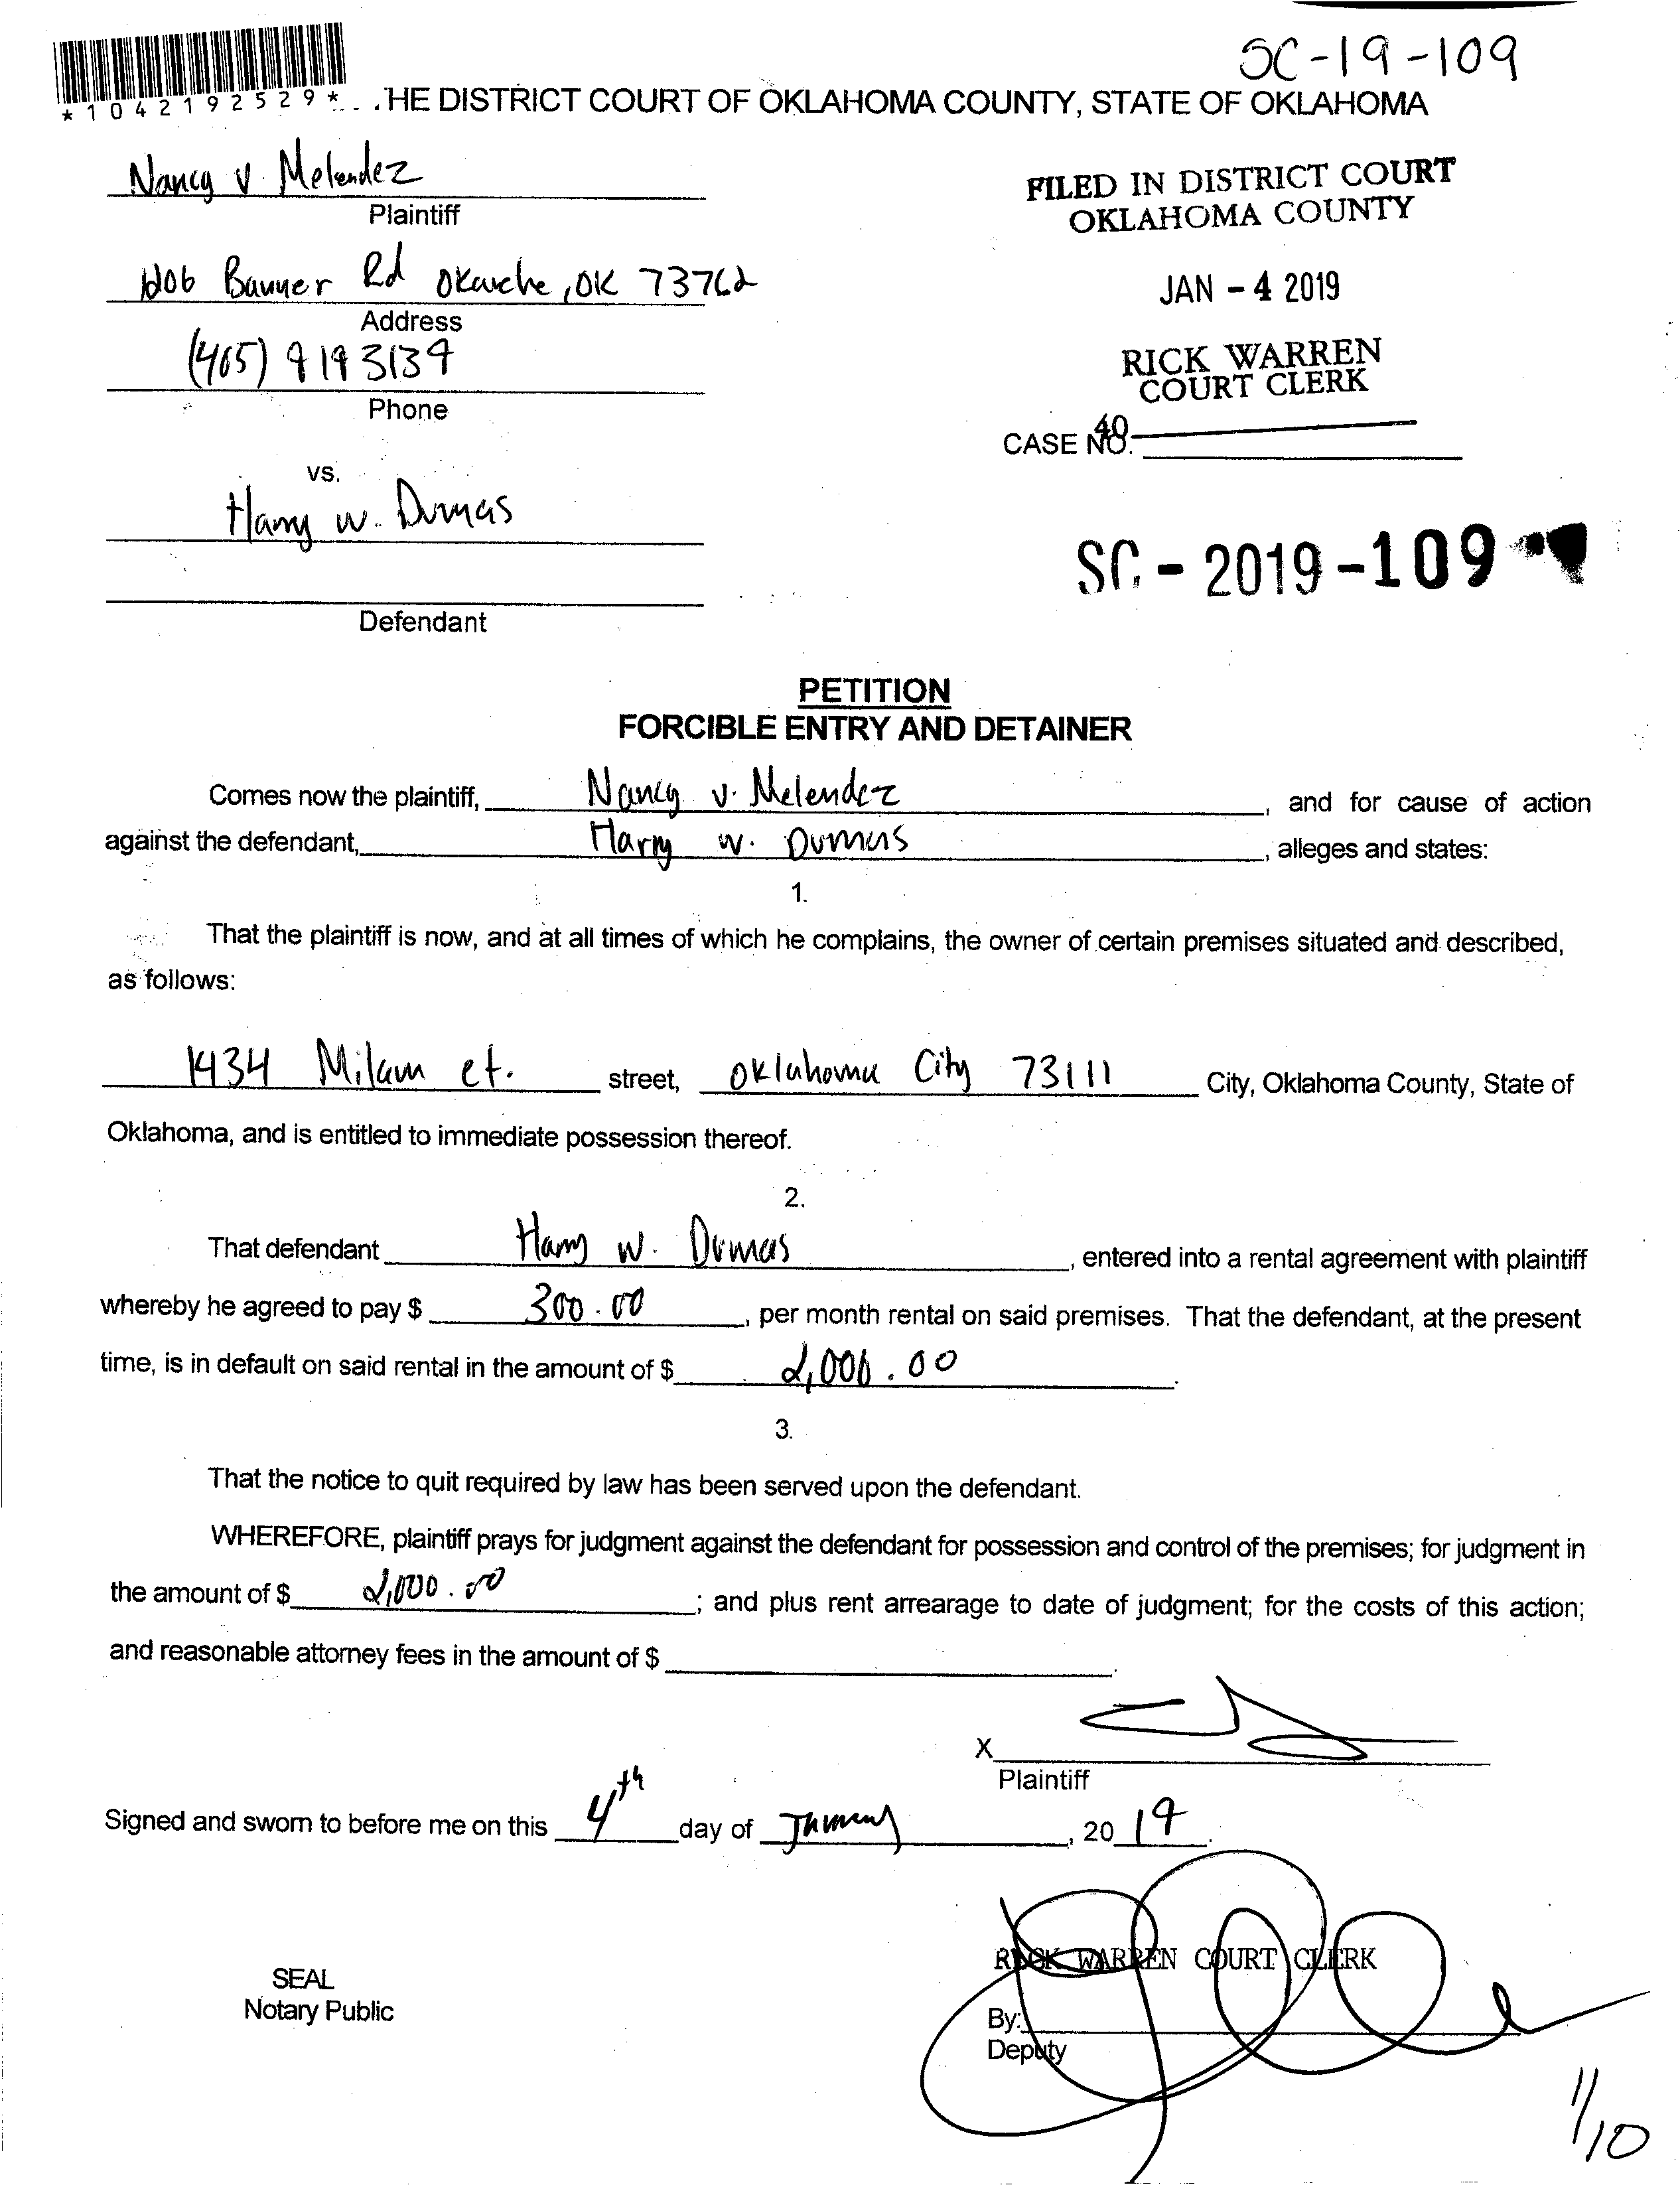 SC-19-109
*1042192529*
HE DISTRICT COURT OF OKLAHOMA COUNTY, STATE OF OKLAHOMA
Nancy V. Melendez
Plaintiff
FILED IN DISTRICT COURT
OKLAHOMA COUNTY
Banner Rd Okarche, OK 73762
Address
JAN - 4 2019
(405) 919 3139
Phone
RICK WARREN
COURT CLERK
40
CASE NO.
vs.
Harry W. Dumas
Defendant
SC - 2019 - 109
PETITION
FORCIBLE ENTRY AND DETAINER
Comes now the plaintiff, Nancy V. Melendez, and for cause of action
against the defendant, Harry W. Dumas, alleges and states:
1.
That the plaintiff is now, and at all times of which he complains, the owner of certain premises situated and described,
as follows:
1434 Milam ct. street, Oklahoma City 73111 City, Oklahoma County, State of
Oklahoma, and is entitled to immediate possession thereof.
2.
That defendant Harry W. Dumas, entered into a rental agreement with plaintiff
whereby he agreed to pay $ 300.00, per month rental on said premises. That the defendant, at the present
time, is in default on said rental in the amount of $ 2,000.00.
3.
That the notice to quit required by law has been served upon the defendant.
WHEREFORE, plaintiff prays for judgment against the defendant for possession and control of the premises; for judgment in
the amount of $ 2,000.00; and plus rent arrearage to date of judgment; for the costs of this action;
and reasonable attorney fees in the amount of $.
X
Plaintiff
Signed and sworn to before me on this 4th day of January, 2019.
RICK WARREN COURT CLERK
SEAL
Notary Public
By:
Deputy
1/10